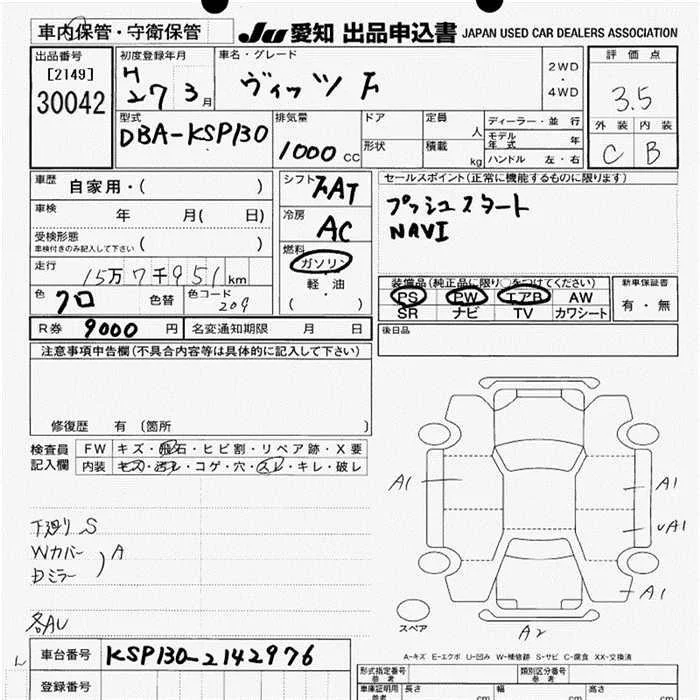 車内保管・守衛保管
JU 愛知 出品申込書 JAPAN USED CAR DEALERS ASSOCIATION
出品番号
[2149]
30042
初度登録年月
H
27 3月
車名・グレード
ヴィッツ F
2WD
・
4WD
評価点
3.5
外装 内装
C B
型式
DBA-KSP130
排気量
1000 CC
ドア
形状
定員 人
積載 kg
ディーラー・並行
モデル年式 年
ハンドル 左・右
車歴 自家用・( )
車検 年 月( 日)
受検形態
車検付きのみ記入して下さい ( )
走行 15万7千951km
色 クロ 色替 色コード 209
R券 9000 円 名変通知期限 月 日
シフト FAT
冷房 AC
燃料
ガソリン
軽油
( )
セールスポイント(正常に機能するものに限ります)
プッシュスタート
NAVI
装備品(純正品に限り○をつけてください)
PS PW エアB AW
SR ナビ TV カワシート
新車保証書
有・無
後日品
注意事項申告欄(不具合内容等は具体的に記入して下さい)
修復歴 有 (箇所 )
検査員記入欄
FW キズ・飛石・ヒビ割・リペア跡・X要
内装 キズ・汚レ・コゲ・穴・スレ・キレ・破レ
下廻り S
Wカバー
Dミラー ) A
各AU
A1
A1
A1
A1
A2
スペア
A-キズ E-エクボ U-凹み W-補修跡 S-サビ C-腐食 XX-交換済
車台番号 KSP130-2142976
登録番号
形式指定番号
類別区分番号
車庫証明用参考
長さ cm
幅 cm
高さ cm